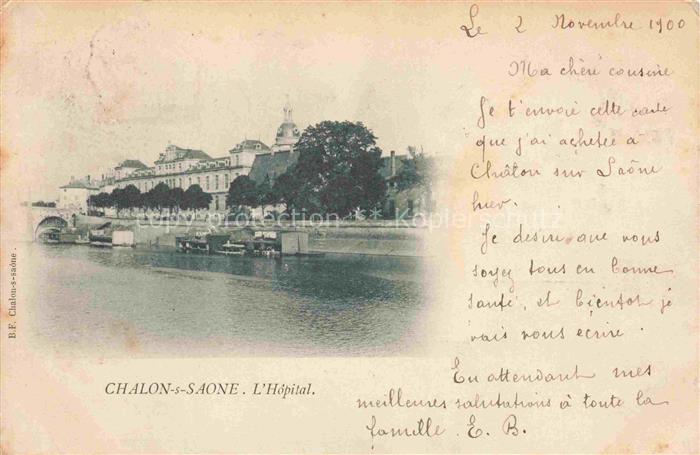 Le 2 Novembre 1900
Ma chère cousine
Je t'envoie cette carte
que j'ai achetée à
Châlon sur Saône
hier.
Je desire que vous
soyez tous en bonne
santé, et bientot je
vais vous ecrire.
En attendant mes
meilleures salutations à toute la
famille. E. B.
copyright protection ** Kopierschutz
B.F. Chalon-s-saône.
CHALON-s-SAONE. L'Hôpital.